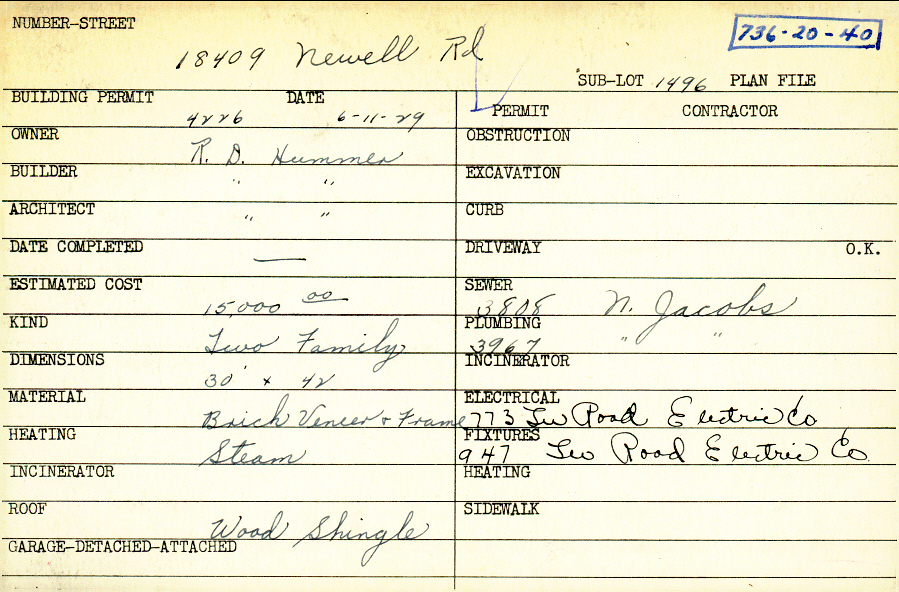 NUMBER-STREET
736-20-40
18409 Newell Rd
SUB-LOT 1496 PLAN FILE
BUILDING PERMIT DATE
4226 6-11-29
PERMIT CONTRACTOR
OWNER
R. D. Hummer
OBSTRUCTION
BUILDER
" "
EXCAVATION
ARCHITECT
" "
CURB
DATE COMPLETED
—
DRIVEWAY O.K.
ESTIMATED COST
15,000 00
SEWER
3808 N. Jacobs
KIND
Two Family
PLUMBING
3967 " "
DIMENSIONS
30' x 42
INCINERATOR
MATERIAL
Brick Veneer + Frame
ELECTRICAL
773 Lee Road Electric Co
HEATING
Steam
FIXTURES
947 Lee Road Electric Co.
INCINERATOR
HEATING
ROOF
Wood Shingle
SIDEWALK
GARAGE-DETACHED-ATTACHED